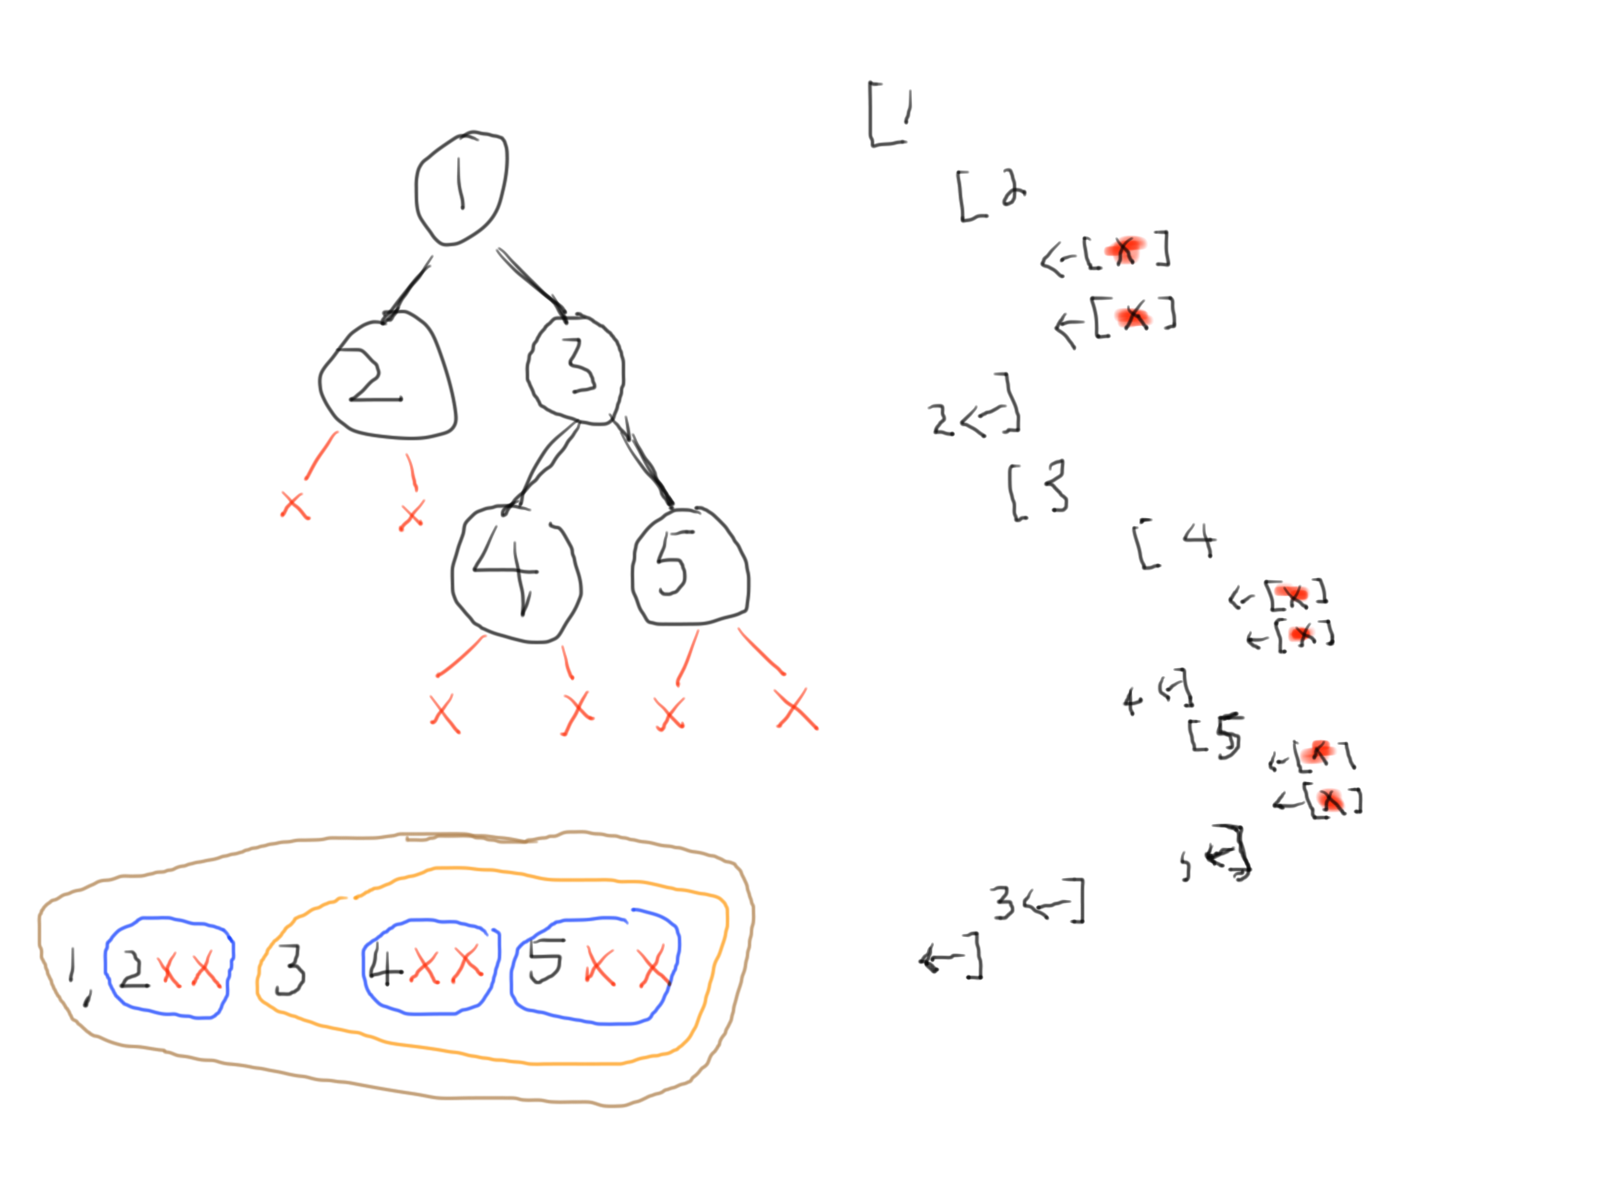 1
2 3
x x
4 5
x x x x
1, 2xx 3 4xx 5xx
[1
[2
←[x]
←[x]
2←]
[3
[4
←[x]
←[x]
4←]
[5
←[x]
←[x]
←]
3←]
←]